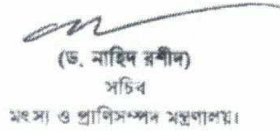 (ড. নাহিদ রশীদ)
সচিব
মৎস্য ও প্রাণিসম্পদ মন্ত্রণালয়।